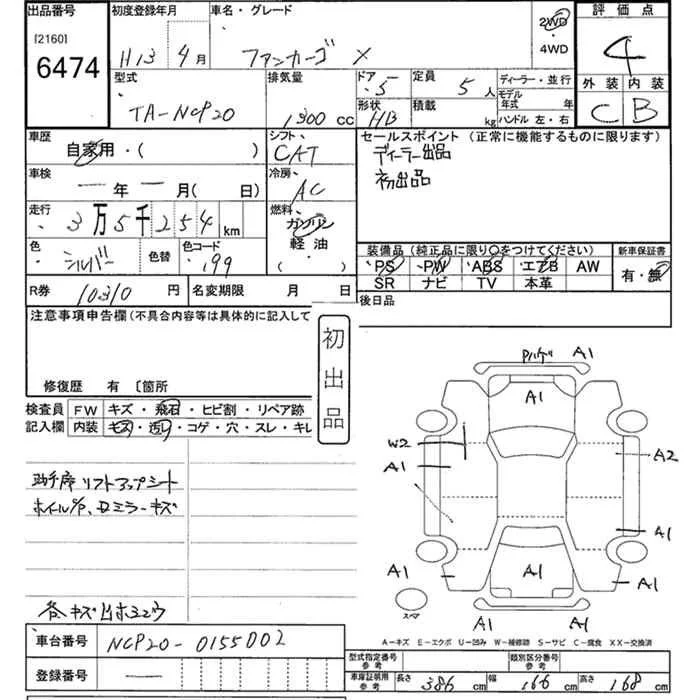 出品番号 初度登録年月 車名・グレード 2WD・4WD 評価点
[2160]
6474 H13年4月 ファンカーゴ X 4
型式 排気量 ドア 定員 ディーラー・並行 外装 内装
TA-NCP20 1300cc 5 5人 モデル年式 年 C B
形状 積載 ハンドル 左・右
HB kg
車歴 シフト セールスポイント(正常に機能するものに限ります)
自家用・( ) CAT ディーラー出品
車検 冷房 初出品
―年―月( 日) AC
走行 燃料
3万5千254km ガソリン
軽油
・( )
色 色替 色コード 装備品(純正品に限り○をつけてください) 新車保証書
シルバー 199 PS PW ABS エアB AW 有・無
SR ナビ TV 本革
R券 10310円 名変期限 月 日 後日品
注意事項申告欄(不具合内容等は具体的に記入して
初出品
修復歴 有 〔箇所
検査員 FW キズ・飛石・ヒビ割・リペア跡
記入欄 内装 キズ・汚レ・コゲ・穴・スレ・キレ
Pハゲ A1
A1
W2 A2
A1
A1
A1 A1 A1
A1 A1
スペア
助手席リフトアップシート
ホイルc/P、ドミラーキズ
各キズ凹ホミュウ
A－キズ E－エクボ U－凹み W－補修跡 S－サビ C－腐食 XX－交換済
車台番号 NCP20-0155002
登録番号 ―
型式指定番号 参考 類別区分番号 参考
車庫証明用 参考 長さ 386cm 幅 166cm 高さ 168cm